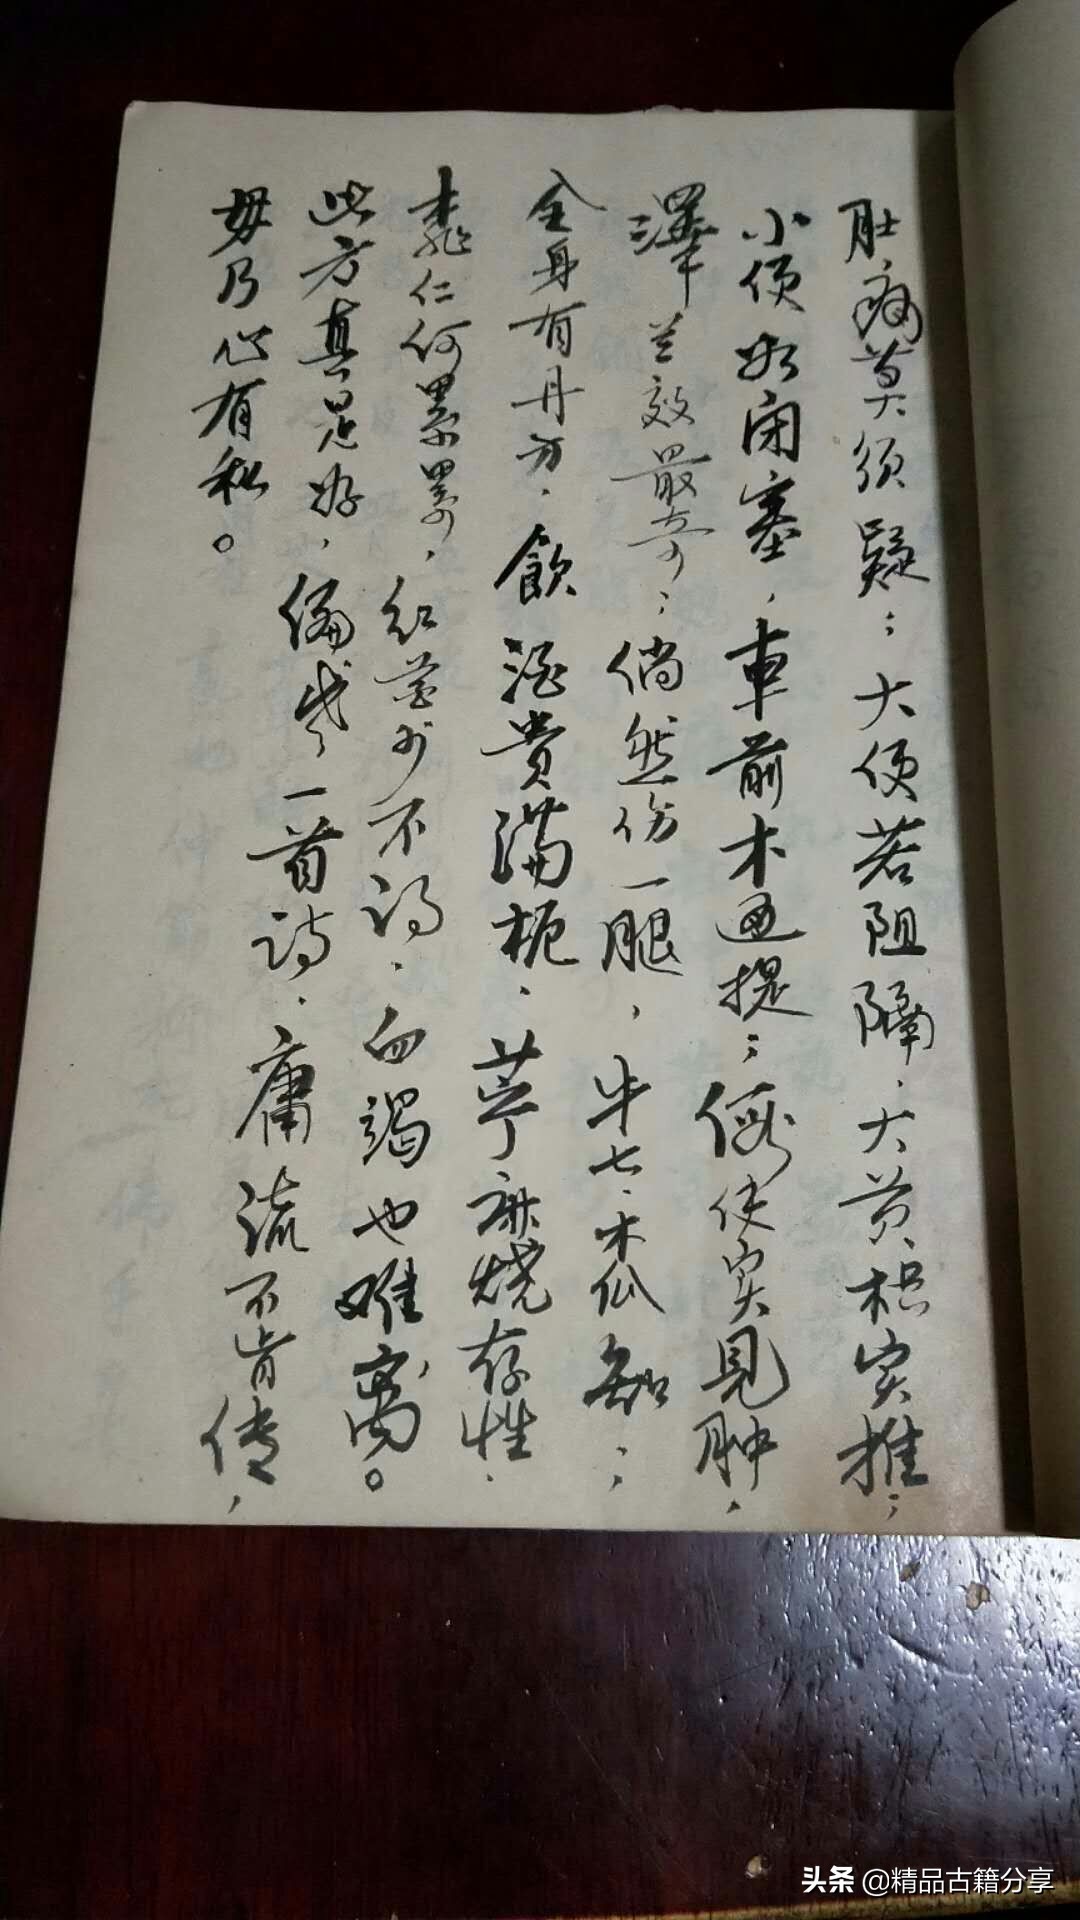 肚痛莫须疑；大便若阻隔，大黄枳实推；
小便如闭塞，車前木通提；假使实見肿，
澤兰效最奇；倘然伤一腿，牛七木瓜知；
全身有丹方，飲酒貴滿梔，苧麻烧存性，
桃仁何累累，红花少不得，血竭也难离。
此方真是好，编成一首诗，庸流不肯传，
毋乃心有私。
头条@精品古籍分享